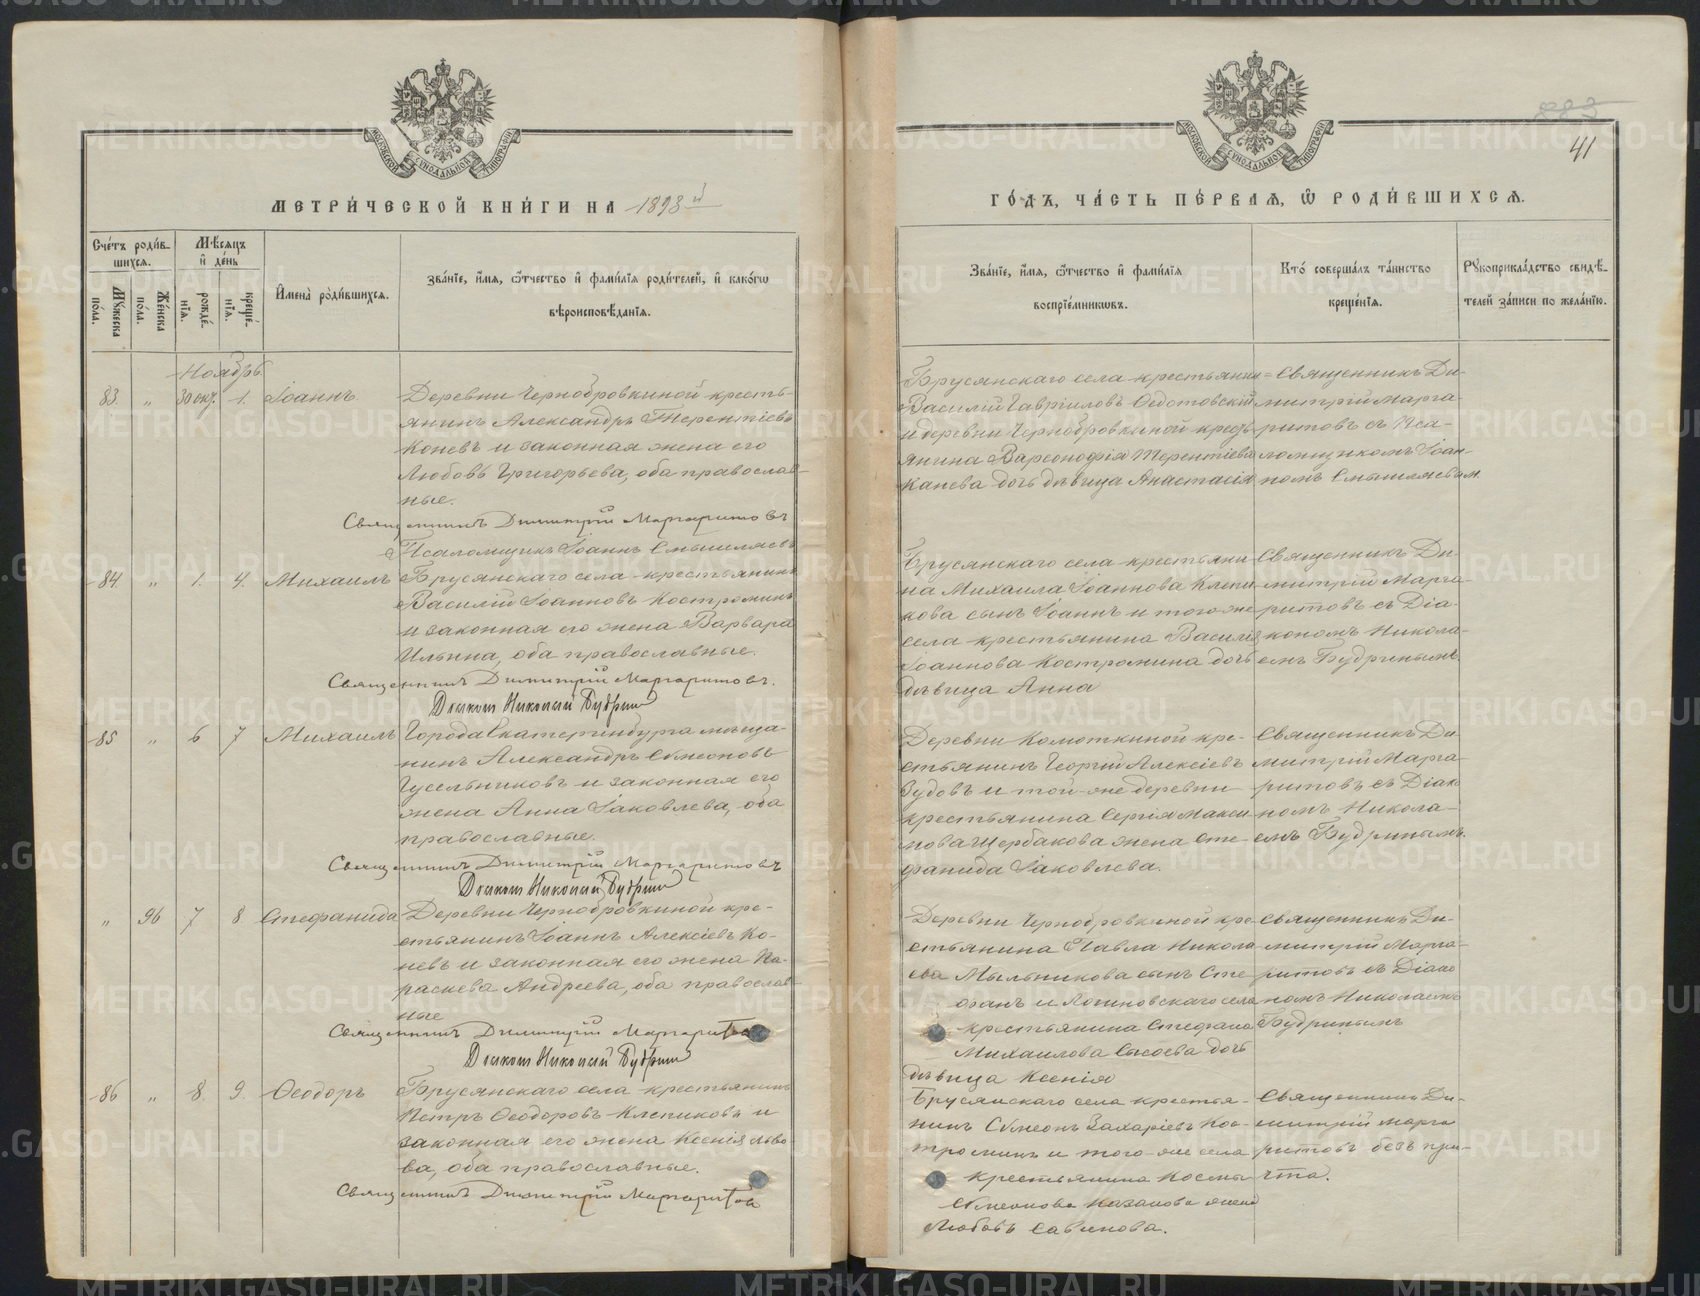 МЕТРИ́ЧЕСКОЙ КНИ́ГИ НА 1893 й
Счетъ роди́в-
шихся.
Мѣсяцъ
и де́нь
Му́жеска
по́ла.
Же́нска
по́ла.
рожде́-
нїя.
креще́-
нїя.
Имена̀ роди́вшихся.
Зва́нїе, и́мя, ѻ҆́тчество и҆ фами́лїя роди́телей, и҆ како́гѡ
вѣроисповѣ́данїя.
Ноябрь.
83 „ 30 окт. 1. Іоаннъ
Деревни Чернобровкиной кресть-
янинъ Александръ Терентіевъ
Коневъ и законная жена его
Любовь Григорьева, оба православ-
ные.
Священникъ Димитрій Маргаритовъ
Псаломщикъ Іоаннъ Смышляевъ
84 „ 1. 4. Михаилъ
Брусянскаго села крестьянинъ
Василій Іоанновъ Костроминъ
и законная его жена Варвара
Ильина, оба православные.
Священникъ Димитрій Маргаритовъ.
Діаконъ Николай Будринъ
85 „ 6 7 Михаилъ
Города Екатеринбурга мѣща-
нинъ Александръ Сѵмеоновъ
Гусельниковъ и законная его
жена Анна Іаковлева, оба
православные.
Священникъ Димитрій Маргаритовъ
Діаконъ Николай Будринъ
„ 96 7 8 Стефанида
Деревни Чернобровкиной кре-
стьянинъ Іоаннъ Алексіевъ Ко-
невъ и законная его жена Па-
раскева Андреева, оба православ-
ные
Священникъ Димитрій Маргаритовъ
Діаконъ Николай Будринъ
86 „ 8. 9. Ѳеодоръ
Брусянскаго села крестьянинъ
Петръ Ѳеодоровъ Клепиковъ и
законная его жена Ксенія Льво-
ва, оба православные.
Священникъ Димитрій Маргаритовъ
41
ГО́ДЪ, ЧА́СТЬ ПЕ́РВАЯ, Ѡ РОДИ́ВШИХСЯ.
Зва́нїе, и́мя, ѻ҆́тчество и҆ фами́лїя
воспрїе́мниковъ.
Кто́ соверша́лъ та́инство
креще́нїя.
Рукоприкла́дство свидѣ́-
телей за́писи по жела́нїю.
Брусянскаго села крестьянинъ
Василій Гавріиловъ Ѳедотовскій
и деревни Чернобровкиной крест-
янина Варсонофія Терентіева
Канева дочь дѣвица Анастасія
Священникъ Ди-
митрій Марга-
ритовъ съ Пса-
ломщикомъ Іоан-
номъ Смышляевым
Брусянскаго села крестьяни-
на Михаила Іоаннова Клепи-
кова сынъ Іоаннъ и того же
села крестьянина Василія
Іоаннова Костромина дочь
дѣвица Анна
Священникъ Ди-
митрій Марга-
ритовъ съ Діа-
кономъ Никола-
емъ Будринымъ.
Деревни Колоткиной кре-
стьянинъ Георгій Алексіевъ
Зудовъ и той-же деревни
крестьянина Сергія Макси-
мова Щербакова жена Сте-
фанида Іаковлева.
Священникъ Ди-
митрій Марга-
ритовъ съ Діако-
номъ Никола-
емъ Будринымъ.
Деревни Чернобровкиной кре-
стьянина Павла Никола-
ева Мыльникова сынъ Сте-
фанъ и Логиновскаго села
крестьянина Стефана
Михаилова Сысоева дочь
дѣвица Ксенія
Священникъ Ди-
митрій Марга-
ритовъ съ Діако-
номъ Николаемъ
Будринымъ
Брусянскаго села крестья-
нинъ Сѵмеонъ Захаріевъ Кос-
троминъ и того-же села
крестьянина Космы
Сѵмеонова Казакова жена
Любовь Саввинова.
Священникъ Ди-
митрій Марга-
ритовъ безъ при-
чта.
METRIKI.GASO-URAL.RU